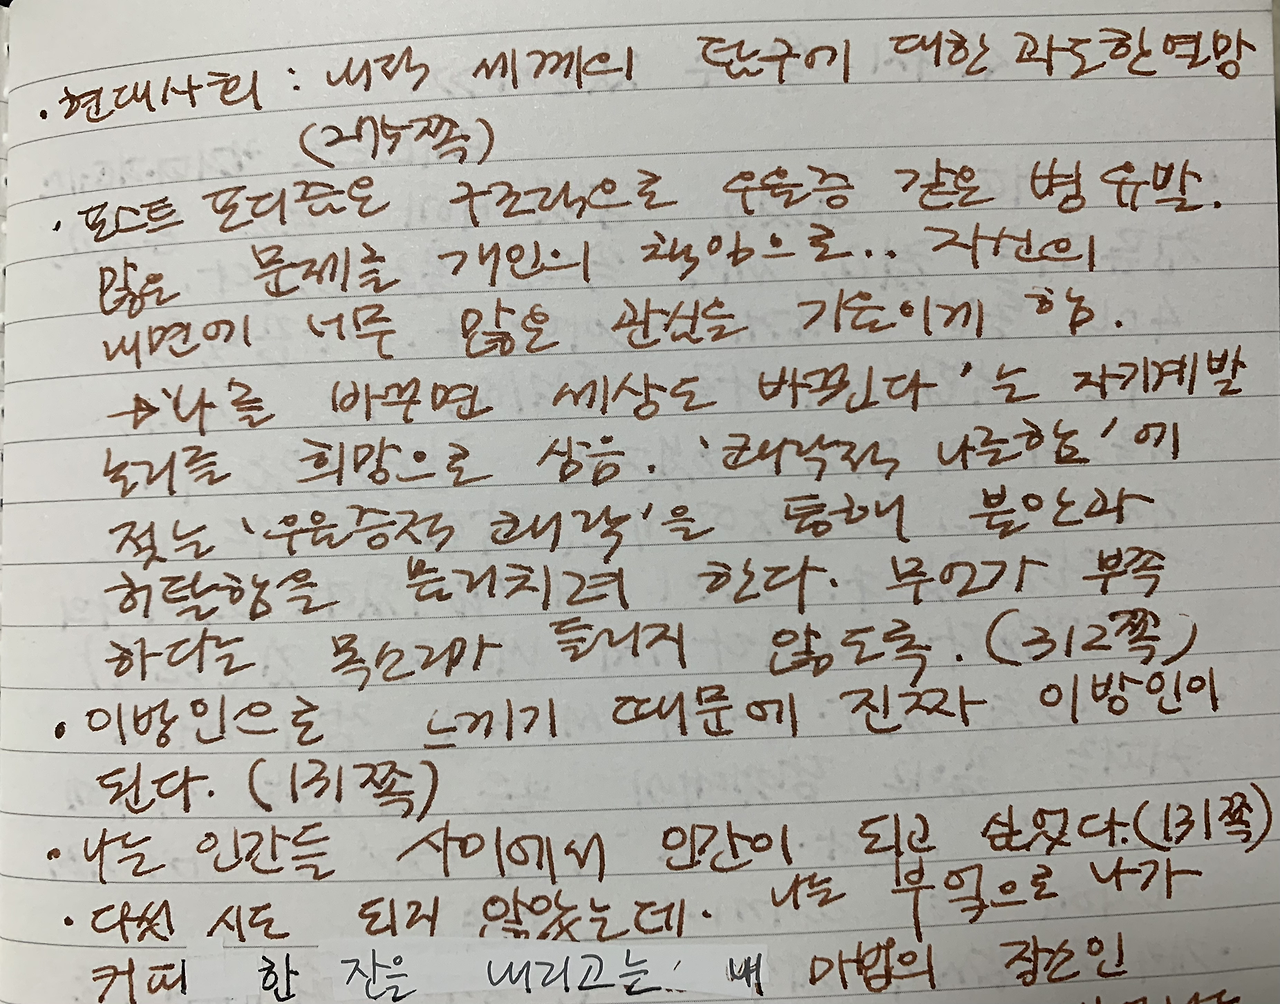 · 현대사회 : 내적 세계의 탐구에 대한 과도한 열망
(274쪽)
· 포스트 포디즘은 구조적으로 우울증 같은 병 유발.
많은 문제를 개인의 책임으로.. 자신의
내면에 너무 많은 관심을 기울이게 함.
→ '나를 바꾸면 세상도 바뀐다'는 자기계발
논리를 희망으로 삼음. '쾌락적 나른함'에
젖는 '우울증적 쾌락'을 통해 불안과
허탈함을 물리치려 한다. 무언가 부족
하다는 목소리가 들리지 않도록. (312쪽)
· 이방인으로 느끼기 때문에 진짜 이방인이
된다. (131쪽)
· 나는 인간들 사이에서 인간이 되고 싶었다. (131쪽)
· 다섯 시도 되지 않았는데. 나는 부엌으로 나가
커피 한 잔을 내리고는 내 마법의 장소인